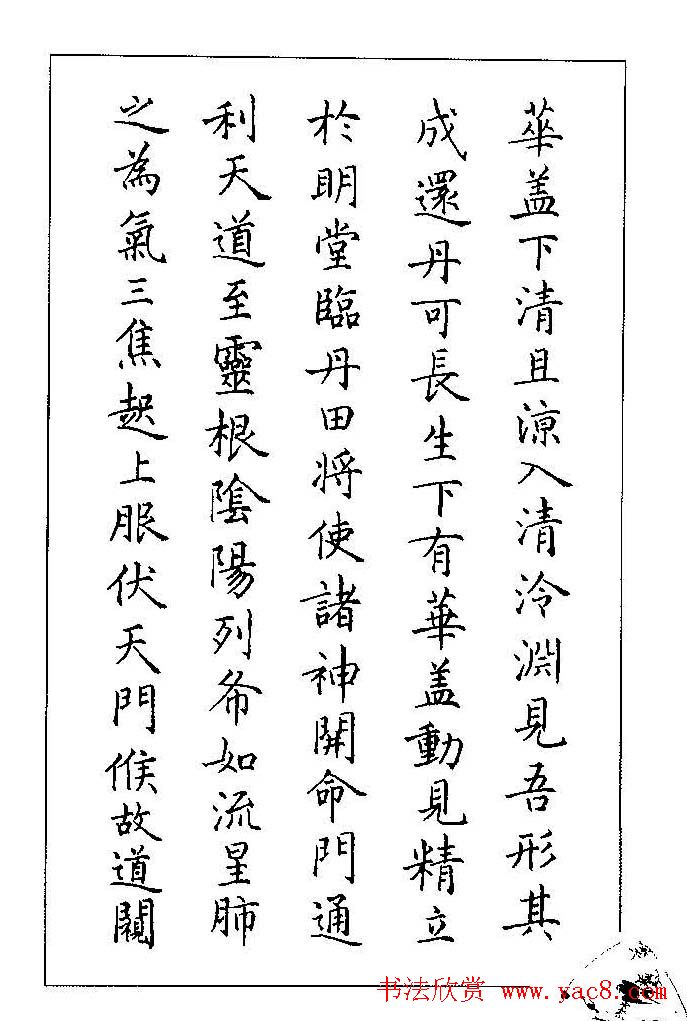 華盖下清且凉入清泠淵見吾形其
成還丹可長生下有華盖動見精立
於明堂臨丹田将使諸神開命門通
利天道至靈根陰陽列布如流星肺
之為氣三焦起上服伏天門候故道闚
书法欣赏 www.yac8.com